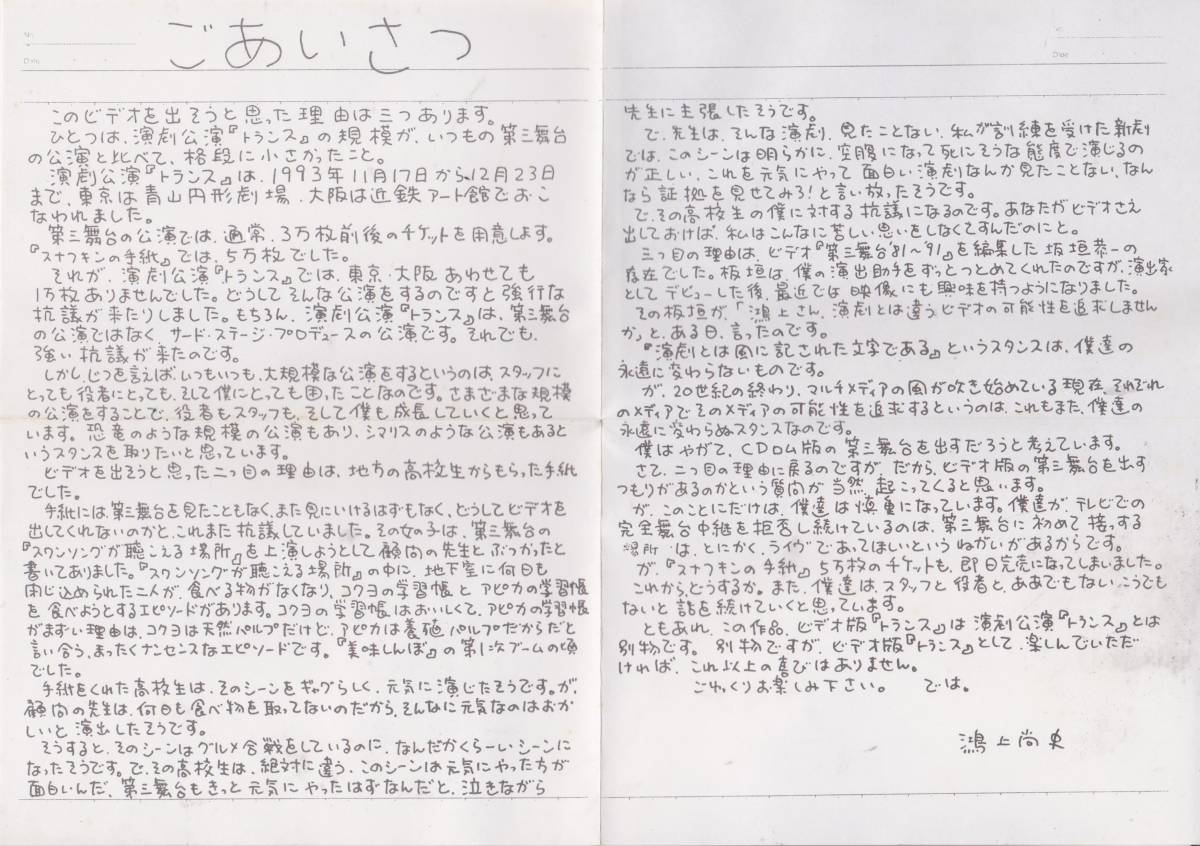 ごあいさつ
No.
Date
このビデオを出そうと思った理由は三つあります。
ひとつは、演劇公演『トランス』の規模が、いつもの第三舞台
の公演と比べて、格段に小さかったこと。
演劇公演『トランス』は、1993年11月17日から、12月23日
まで、東京は青山円形劇場、大阪は近鉄アート館でおこ
なわれました。
第三舞台の公演では、通常、3万枚前後のチケットを用意します。
『スナフキンの手紙』では、5万枚でした。
それが、演劇公演『トランス』では、東京・大阪あわせても
1万枚ありませんでした。どうしてそんな公演をするのですと強行な
抗議が来たりしました。もちろん、演劇公演『トランス』は、第三舞台
の公演ではなく サード・ステージ・プロデュースの公演です。それでも、
強い抗議が来たのです。
しかし、じつを言えば、いつもいつも、大規模な公演をするというのは、スタッフに
とっても役者にとっても、そして僕にとっても困ったことなのです。さまざまな規模
の公演をすることで、役者もスタッフも、そして僕も成長していくと思って
います。恐竜のような規模の公演もあり、シマリスのような公演もあると
いうスタンスを取りたいと思っています。
ビデオを出そうと思った二つ目の理由は、地方の高校生からもらった手紙
でした。
手紙には、第三舞台を見たこともなく、また見にいけるはずもなく、どうしてビデオを
出してくれないのかと、これまた抗議していました。その女の子は、第三舞台の
『スワンソングが聴こえる場所』を上演しようとして顧問の先生とぶつかったと
書いてありました。『スワンソングが聴こえる場所』の中に、地下室に何日も
閉じ込められた二人が、食べる物がなくなり、コクヨの学習帳と アピカの学習帳
を食べようとするエピソードがあります。コクヨの学習帳はおいしくて、アピカの学習帳
がまずい理由は、コクヨは天然パルプだけど、アピカは養殖パルプだからだと
言い合う、まったくナンセンスなエピソードです。『美味しんぼ』の第1次ブームの頃
でした。
手紙をくれた高校生は、そのシーンをギャグらしく、元気に演じたそうです。が、
顧問の先生は、何日も食べ物を取ってないのだから、そんなに元気なのはおか
しいと演出したそうです。
そうすると、そのシーンはグルメ合戦をしているのに、なんだかくらーいシーンに
なったそうです。で、その高校生は、絶対に違う、このシーンは元気にやったちが
面白いんだ、第三舞台もきっと元気にやったはずなんだと、泣きながら
No.
Date
先生に主張したそうです。
で、先生は、そんな演劇、見たことない、私が訓練を受けた新劇
では、このシーンは明らかに、空腹になって死にそうな態度で演じるの
が正しい、これを元気にやって面白い演劇なんか見たことない、なん
なら証拠を見せてみろ!と言い放ったそうです。
で、その高校生の僕に対する抗議になるのです。あなたがビデオさえ
出しておけば、私はこんなに苦しい思いをしなくてすんだのにと。
三つ目の理由は、ビデオ『第三舞台'81～'91』を編集した板垣恭一の
存在でした。板垣は、僕の演出助手をずっとつとめてくれたのですが、演出家
としてデビューした後、最近では映像にも興味を持つようになりました。
その板垣が、「鴻上さん、演劇とは違うビデオの可能性を追求しません
か」と、ある日、言ったのです。
『演劇とは風に記された文字である』というスタンスは、僕達の
永遠に変わらないものです。
が、20世紀の終わり、マルチメディアの風が吹き始めている現在、それぞれ
のメディアでそのメディアの可能性を追求するというのは、これもまた、僕達の
永遠に変わらぬスタンスなのです。
僕はやがて、CDロム版の第三舞台を出すだろうと考えています。
さて、二つ目の理由に戻るのですが、だから、ビデオ版の第三舞台を出す
つもりがあるのかという質問が当然、起こってくると思います。
が、このことにだけは、僕達は慎重になっています。僕達が、テレビでの
完全舞台中継を拒否し続けているのは、第三舞台に初めて接する
場所は、とにかく、ライヴであってほしいというねがいがあるからです。
が、『スナフキンの手紙』5万枚のチケットも、即日完売になってしまいました。
これから、どうするか。また、僕達は、スタッフと役者と、ああでもない、こうでも
ないと話を続けていくと思っています。
ともあれ、この作品、ビデオ版『トランス』は演劇公演『トランス』とは
別物です。別物ですが、ビデオ版『トランス』として、楽しんでいただ
ければ、これ以上の喜びはありません。
ごゆっくりお楽しみ下さい。 では。
鴻上尚史